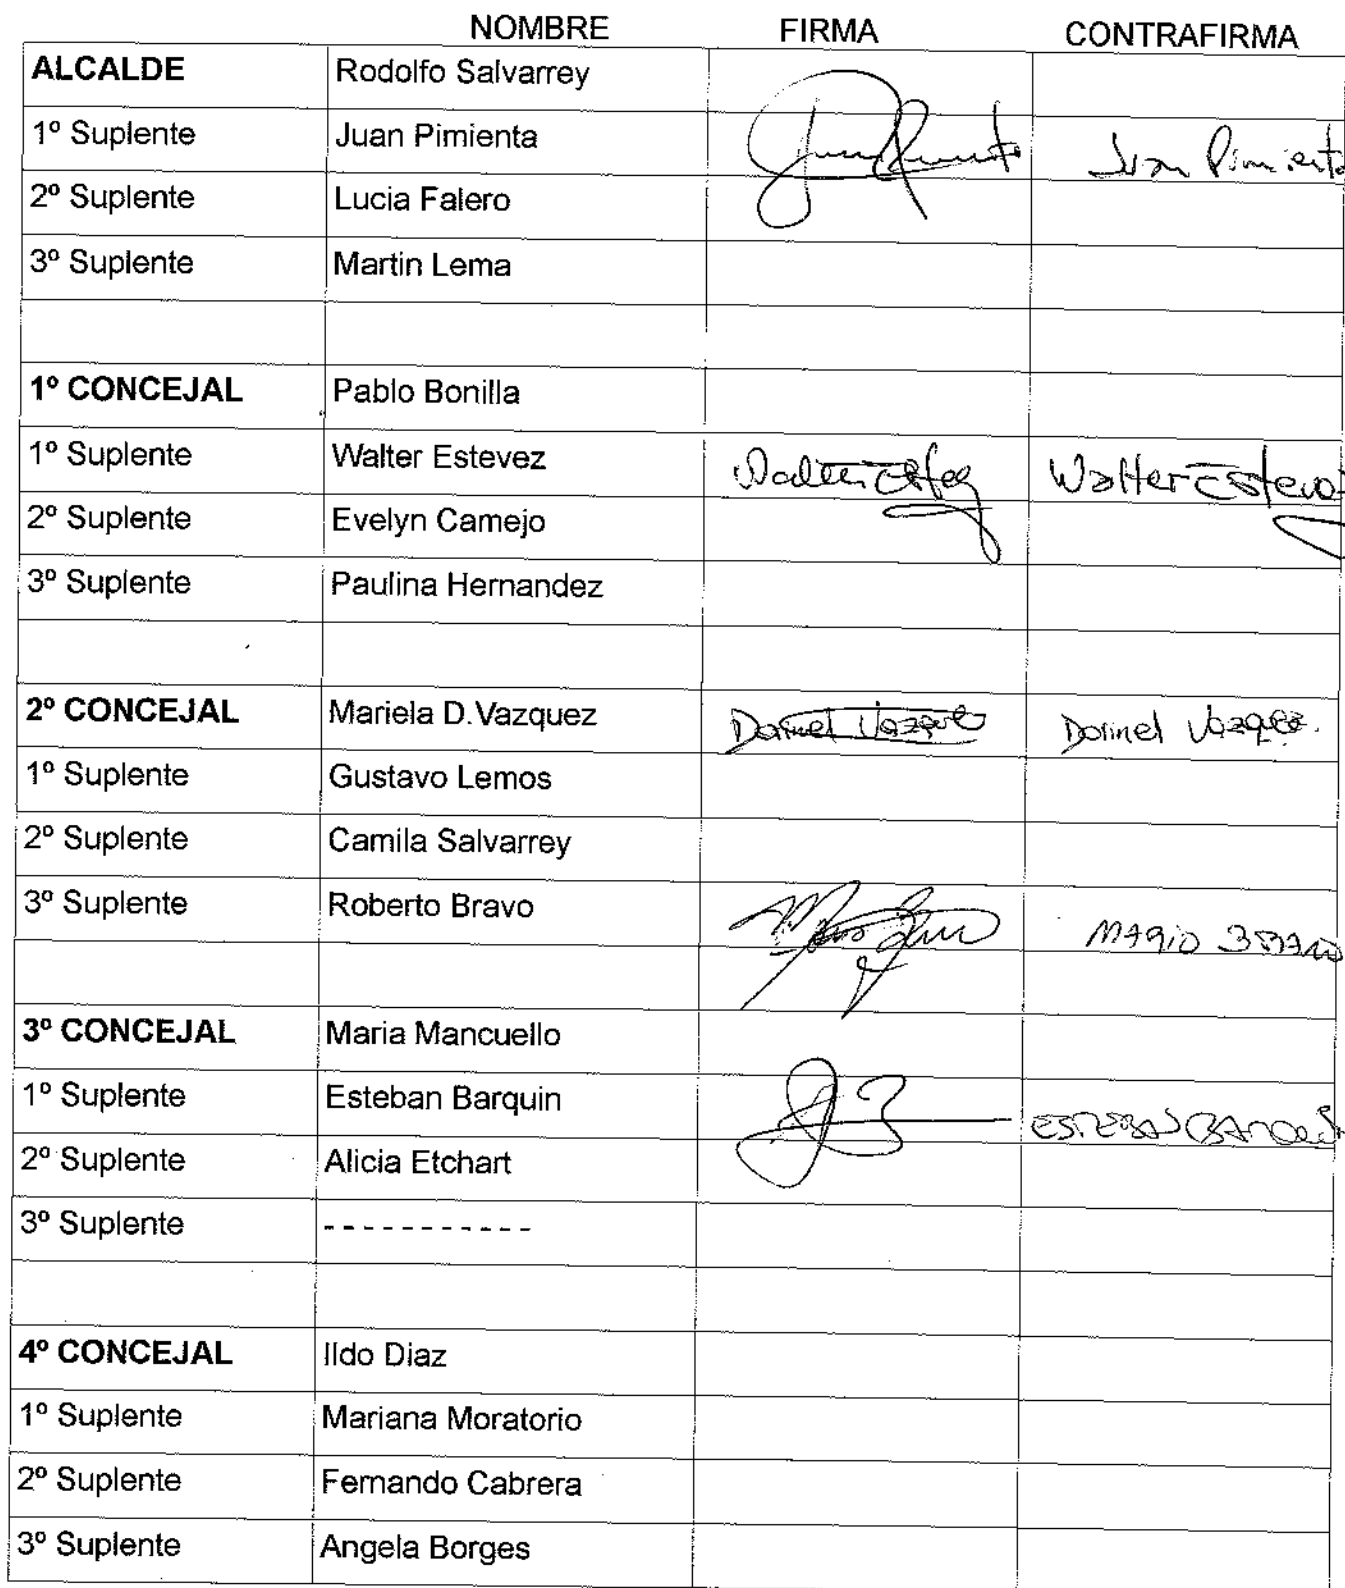 NOMBRE FIRMA CONTRAFIRMA
ALCALDE Rodolfo Salvarrey
1º Suplente Juan Pimienta Juan Pimienta
2º Suplente Lucia Falero
3º Suplente Martin Lema
1º CONCEJAL Pablo Bonilla
1º Suplente Walter Estevez Walter Estevez
2º Suplente Evelyn Camejo
3º Suplente Paulina Hernandez
2º CONCEJAL Mariela D.Vazquez Dorinel Vazquez Dorinel Vazquez.
1º Suplente Gustavo Lemos
2º Suplente Camila Salvarrey
3º Suplente Roberto Bravo MARIO BRAVO
3º CONCEJAL Maria Mancuello
1º Suplente Esteban Barquin ESTEBAN BARQUIN
2º Suplente Alicia Etchart
3º Suplente - - - - - - - - - - -
4º CONCEJAL Ildo Diaz
1º Suplente Mariana Moratorio
2º Suplente Fernando Cabrera
3º Suplente Angela Borges